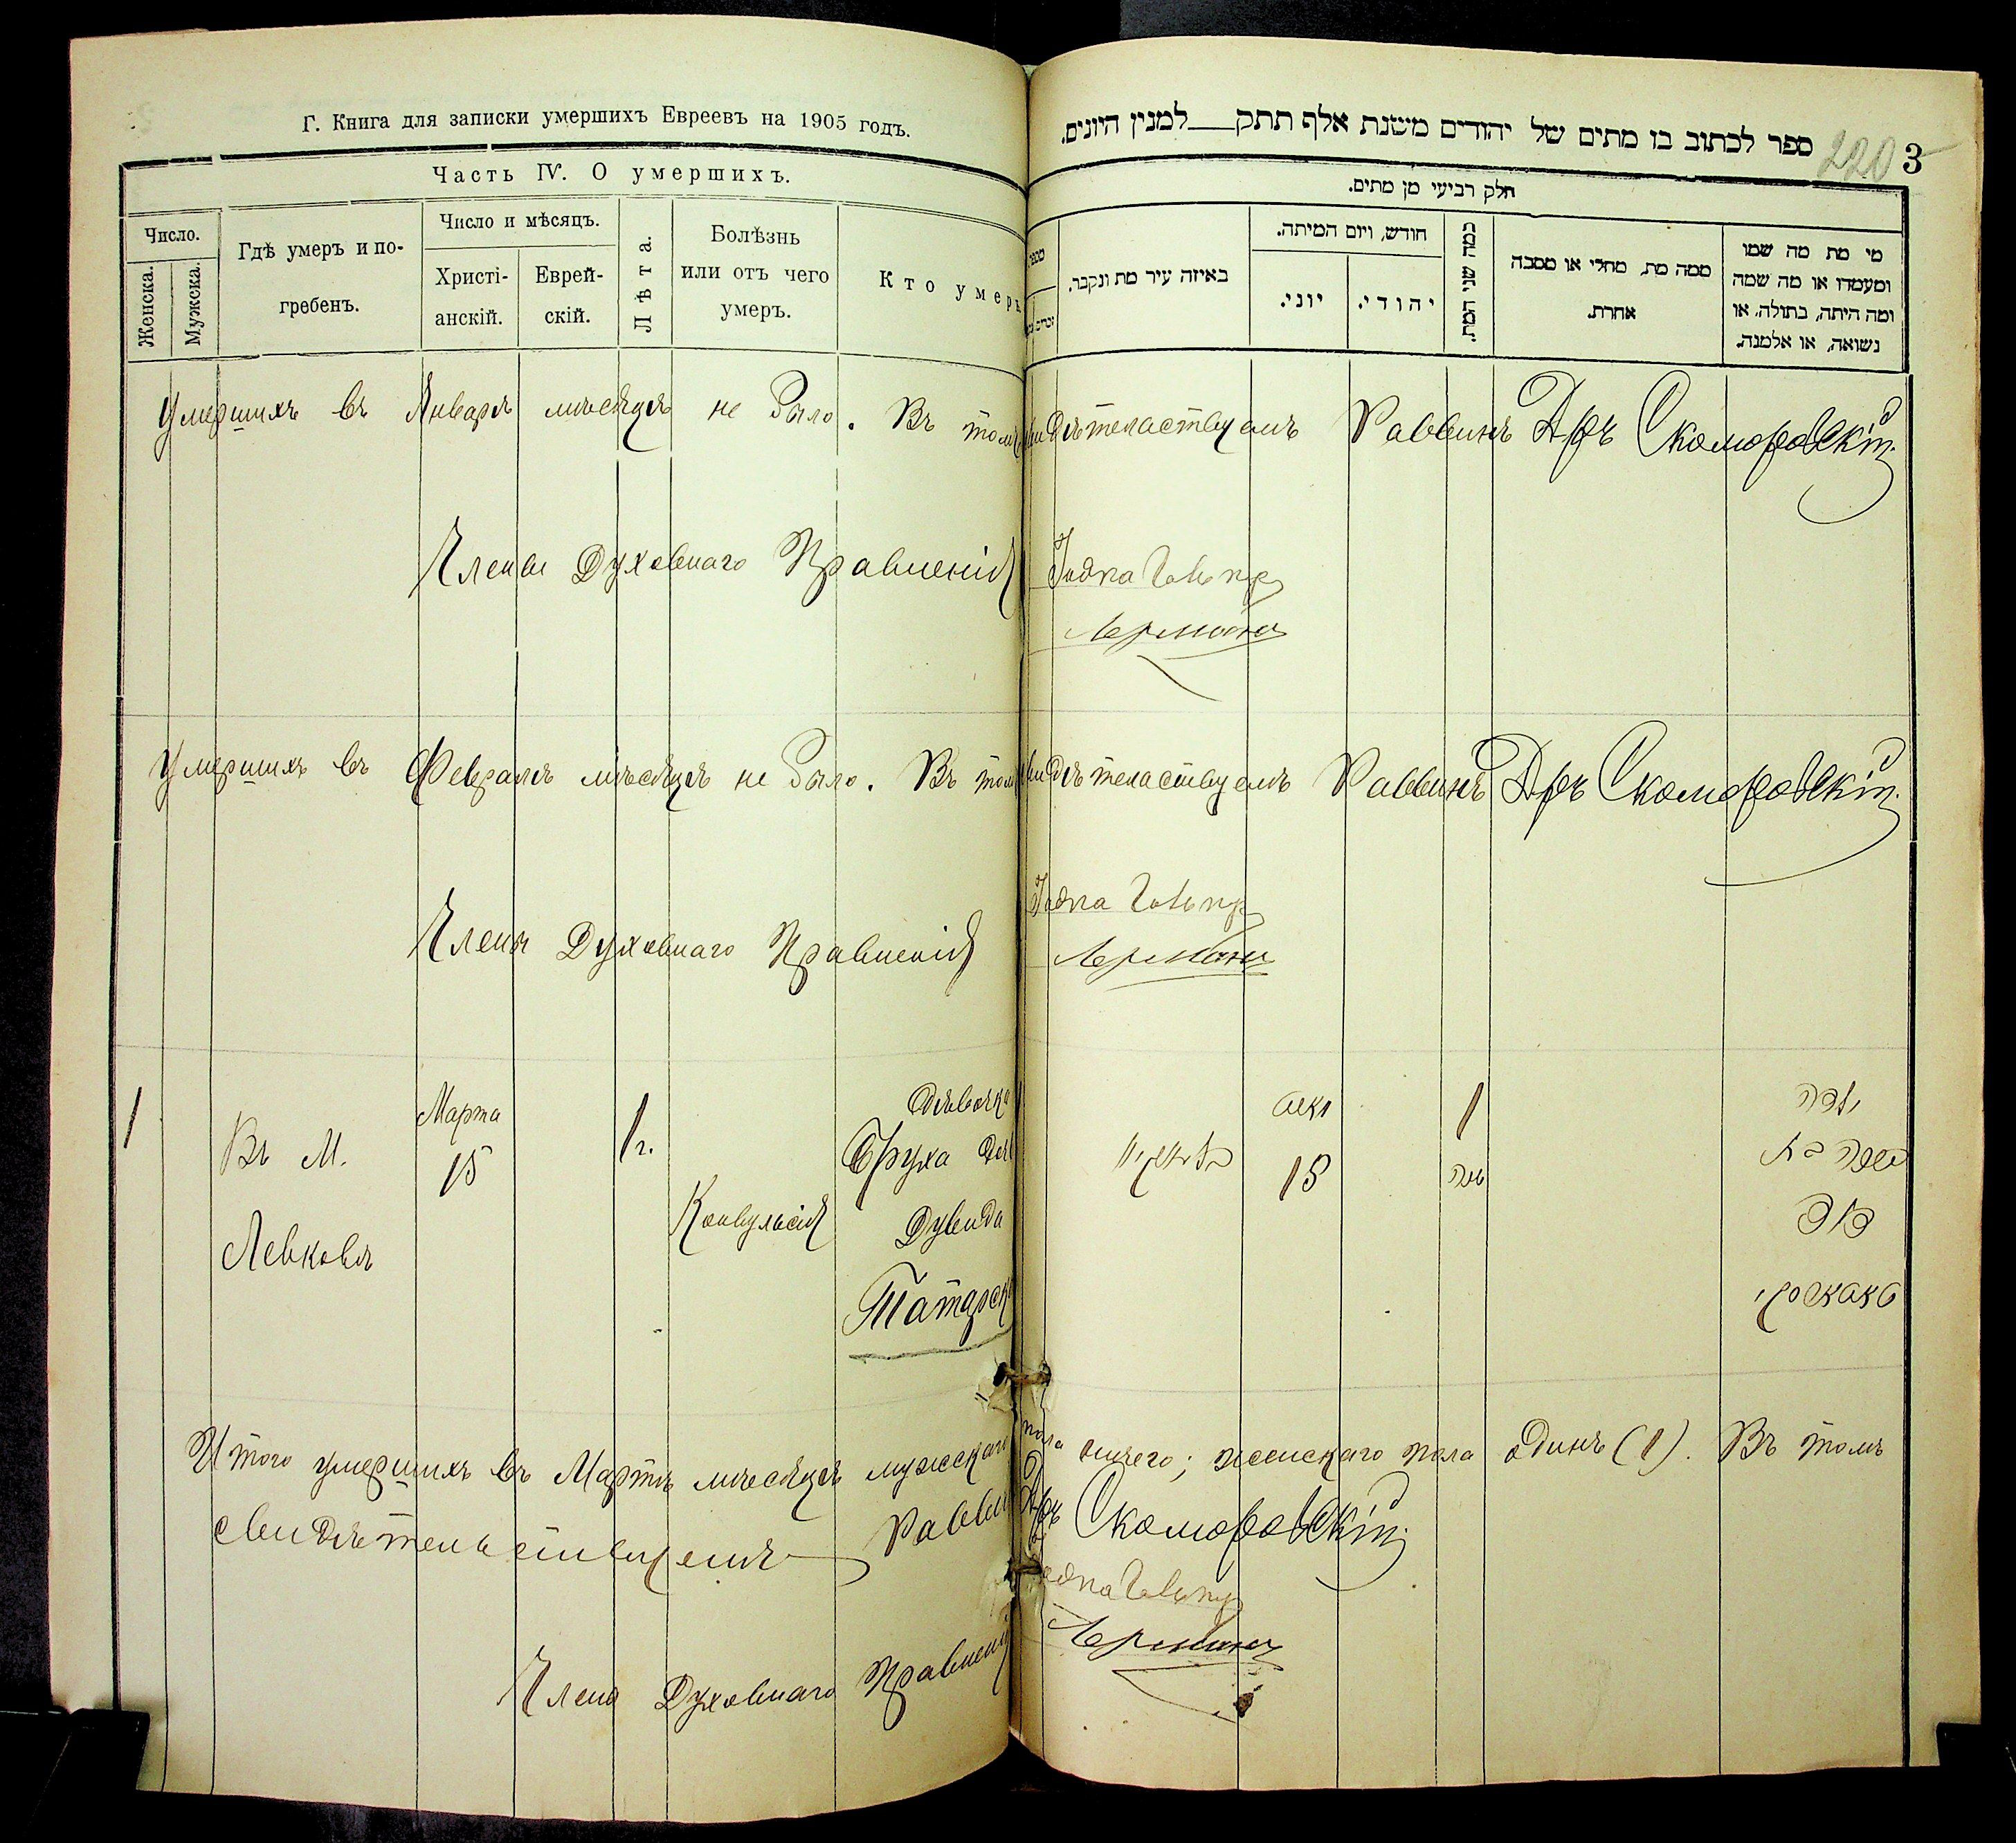 Г. Книга для записки умершихъ Евреевъ на 1905 годъ.
Часть IV. О умершихъ.
Число.
Женска.
Мужска.
Гдѣ умеръ и по-
гребенъ.
Число и мѣсяцъ.
Христі-
анскій.
Еврей-
скій.
Лѣта.
Болѣзнь
или отъ чего
умеръ.
Кто умеръ
ספר לכתוב בו מתים של יהודים משנת אלף תתק___למנין היונים.
220 3
חלק רביעי מן מתים.
באיזה עיר מת ונקבר.
חודש, ויום המיתה.
יוני.
יהודי.
כמה שני המת.
ממה מת, מחלי או מסבה
אחרת.
מי מת מה שמו
ומעמדו או מה שמה
ומה היתה, בתולה, או
נשואה, או אלמנה.
Умершихъ въ Январѣ мѣсяцѣ не было. Въ томъ свидѣтельствуемъ Раввинъ Д-ръ Скоморовскій
Члены Духовнаго Правленія
Умершихъ въ Февралѣ мѣсяцѣ не было. Въ томъ свидѣтельствуемъ Раввинъ Д-ръ Скоморовскій
Члены Духовнаго Правленія
1
Въ М.
Левковѣ
Марта
15
1 г.
Конвульсія
дѣвочка
Бруха
Дувида
Татарск
15
1
שנה
ילדה
דוד
טאטארסקי
Итого умершихъ въ Мартѣ мѣсяцѣ мужскаго пола ничего; женскаго пола одинъ (1). Въ томъ
свидѣтельствуемъ Раввинъ Д-ръ Скоморовскій
Члены Духовнаго Правленія